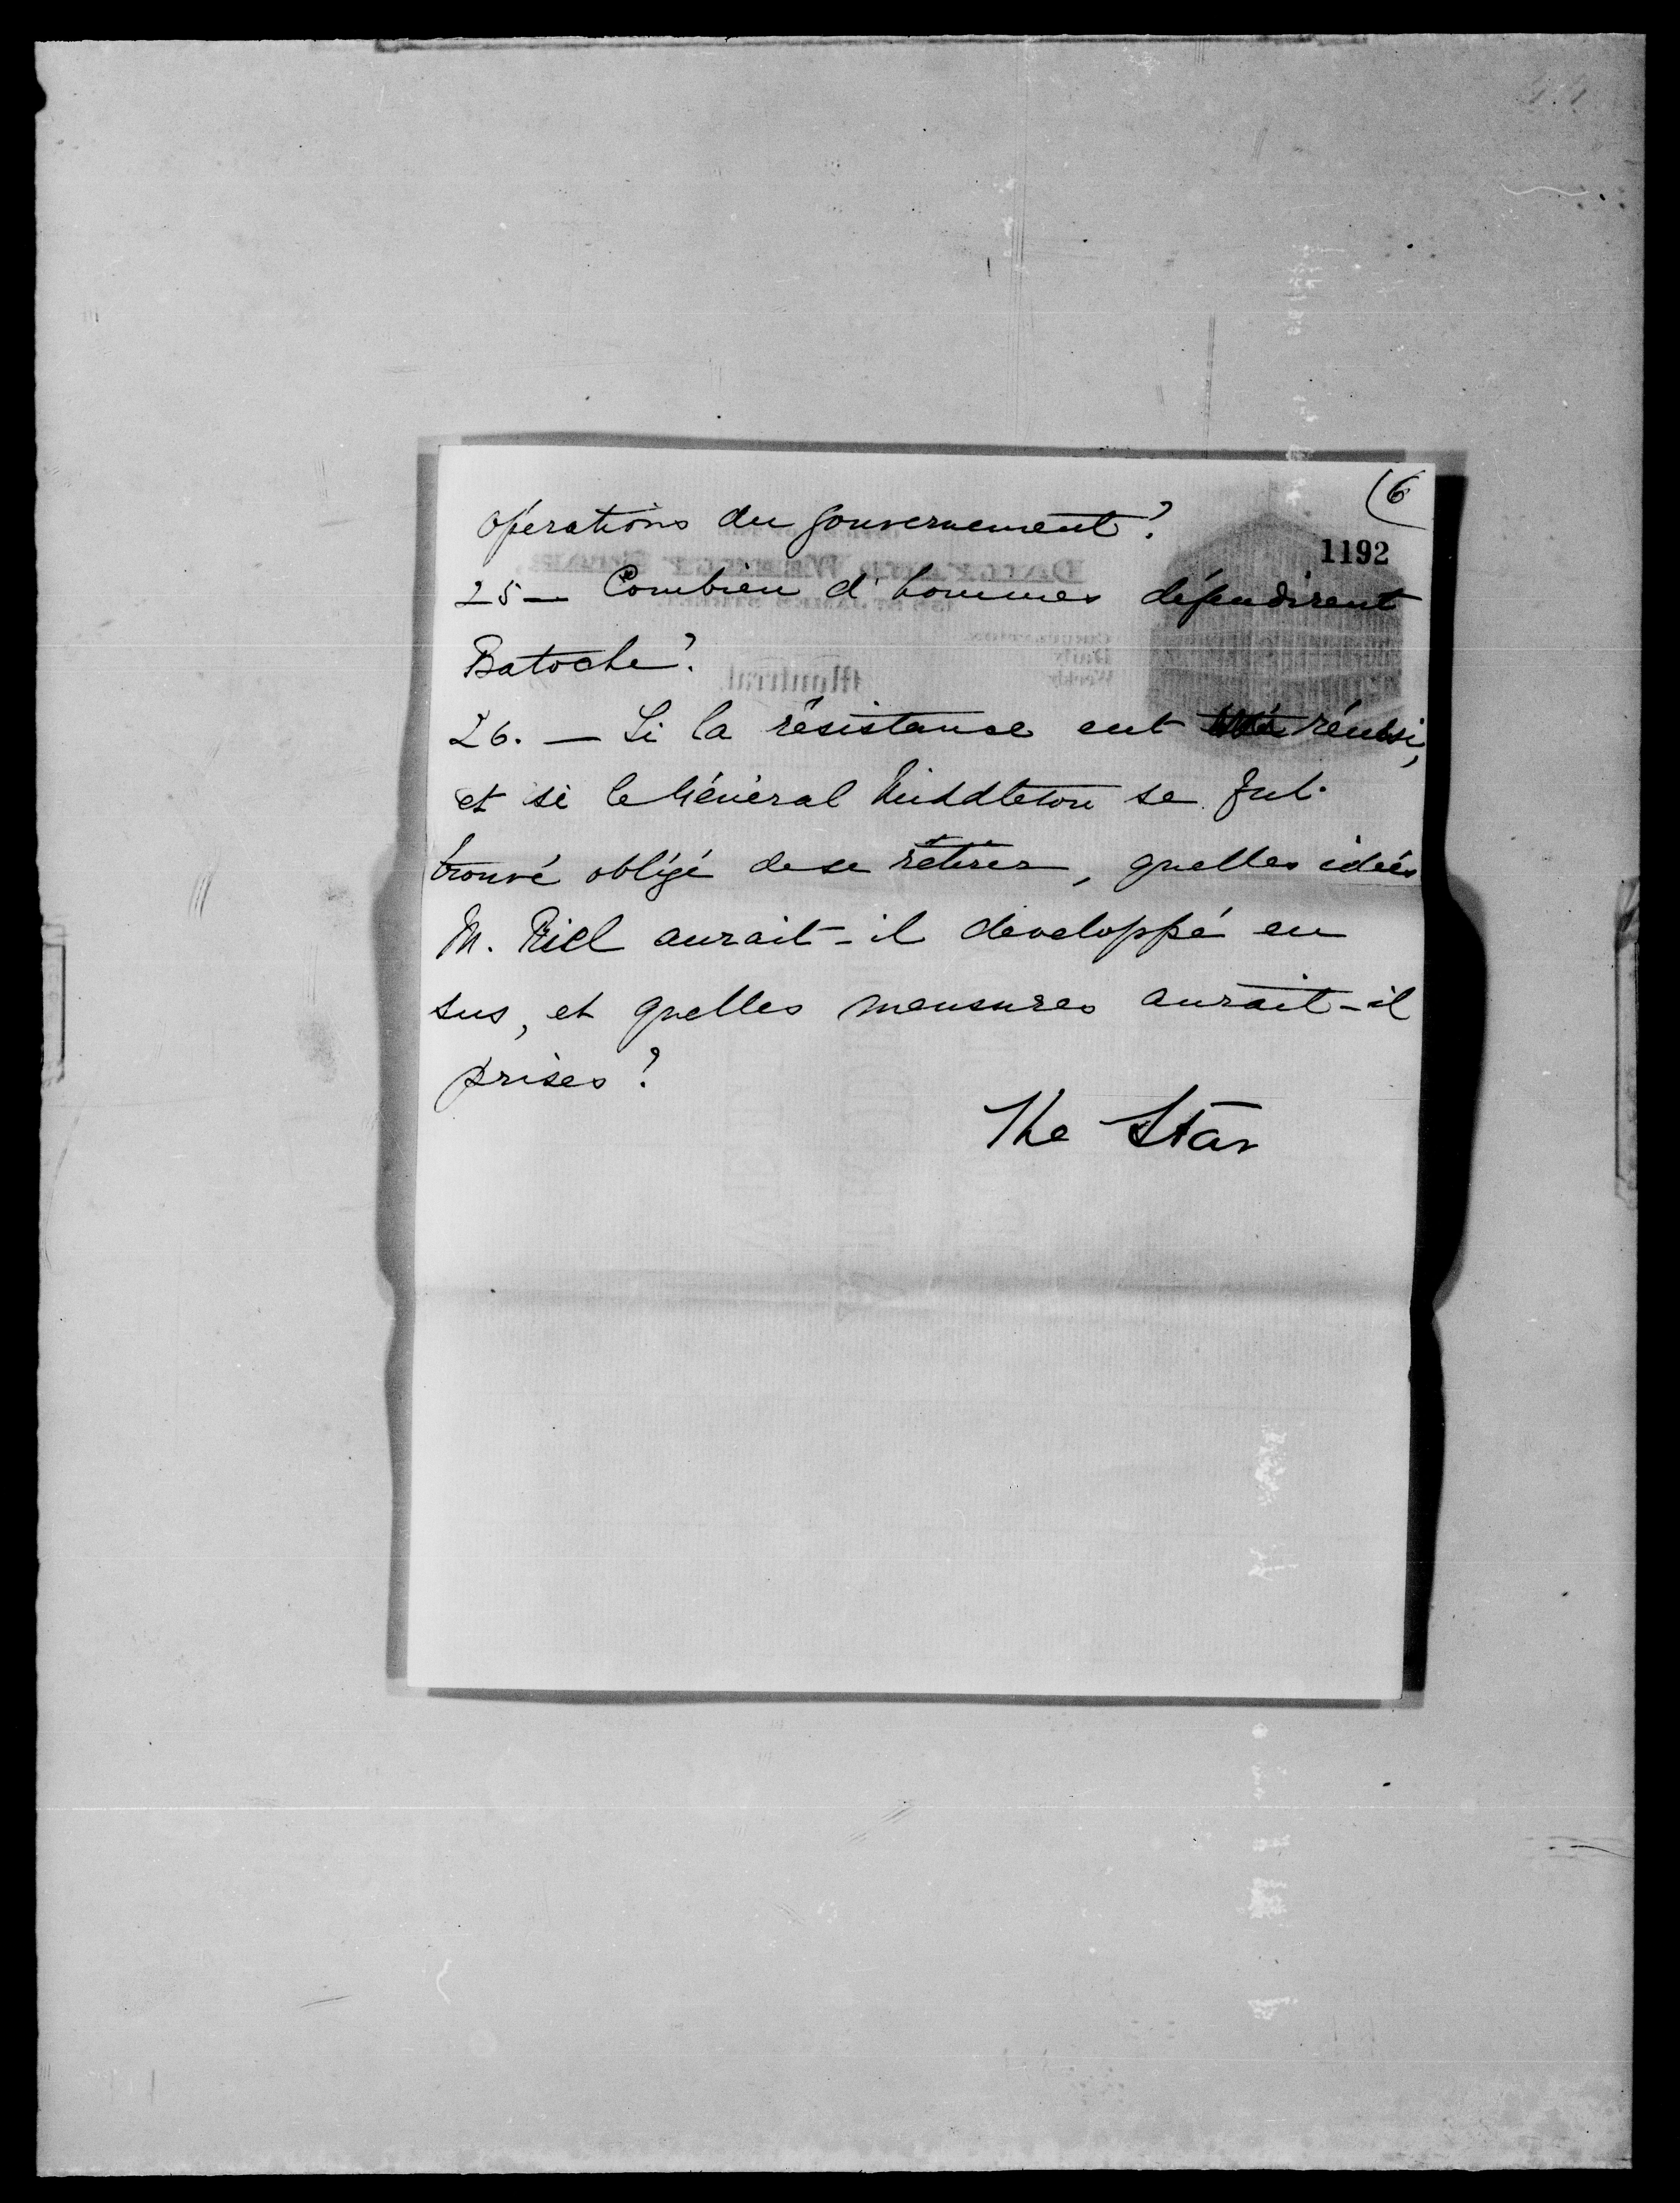 (6
opérations du gouvernement?
1192
25 — Combien d'hommes défendirent
Batoche?
26. — Si la résistance eut réussi,
et si le Général Middleton se fut
trouvé obligé de se retirer, quelles idées
M. Riel aurait-il developpé en
sus, et quelles mensures aurait-il
prises?
The Star